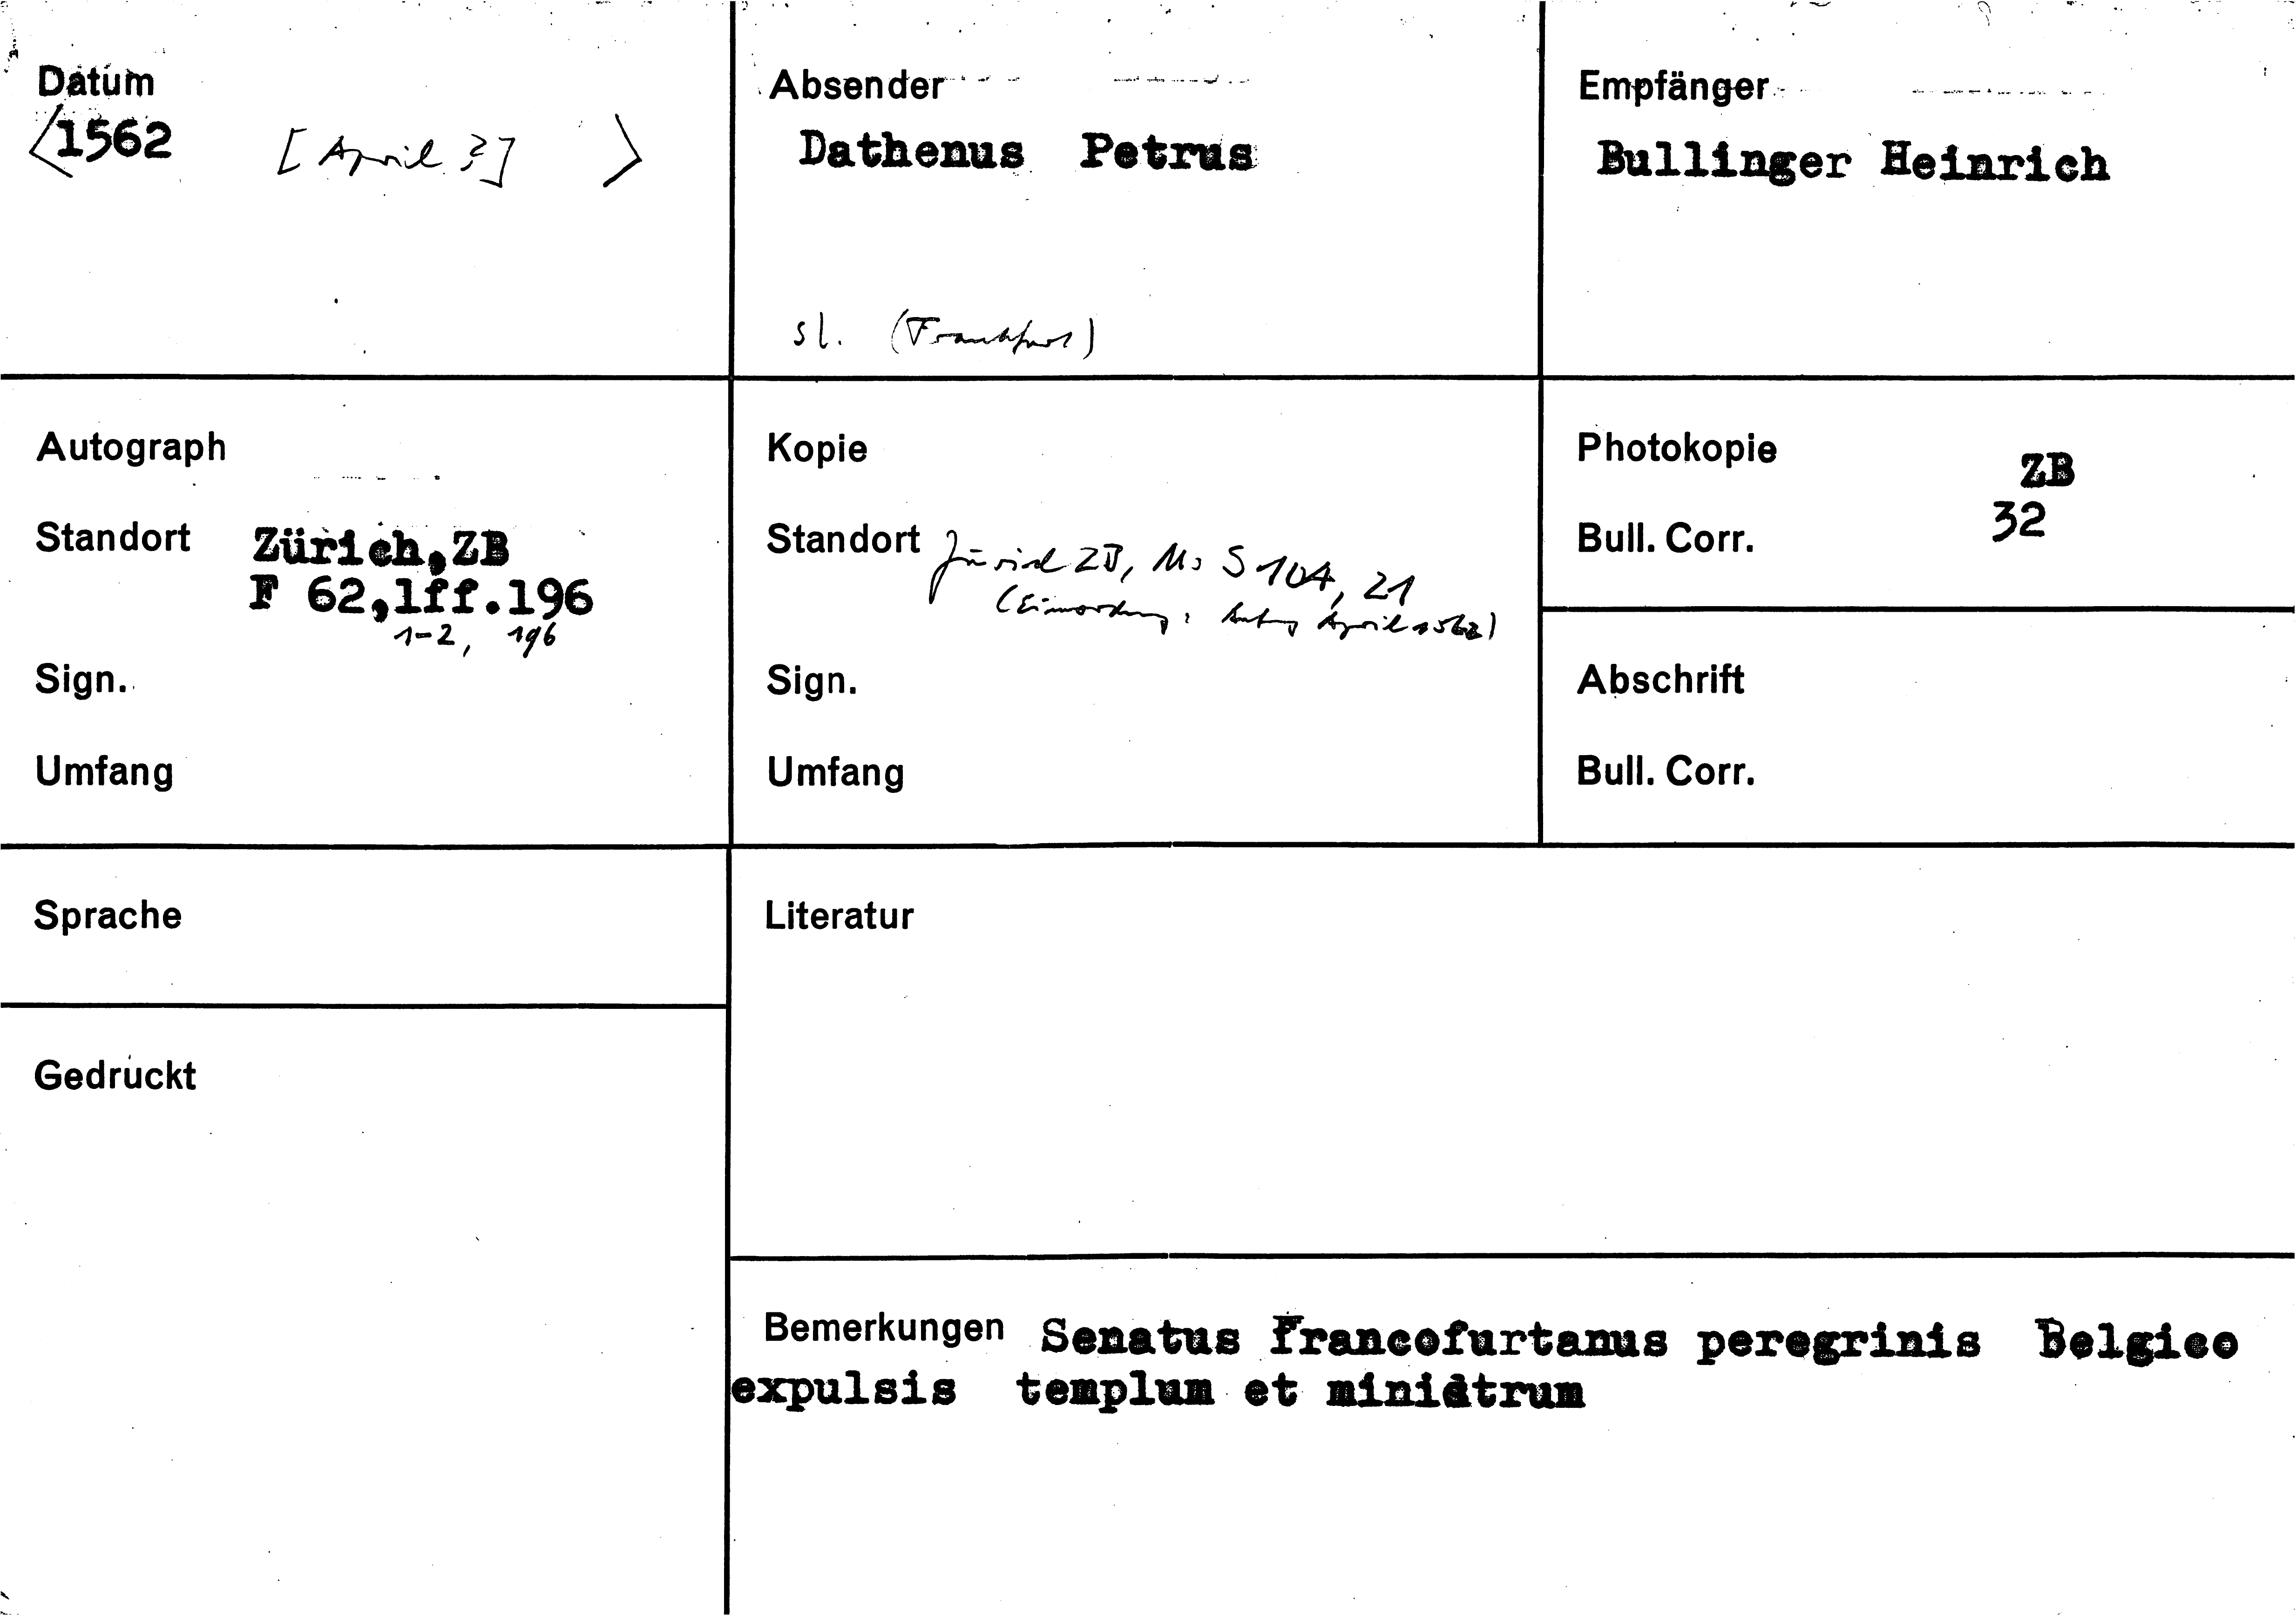 Datum
<1562 [April ?] >
Absender
Dathenus Petrus
sl. (Frankfurt)
Empfänger
Bullinger Heinrich
Autograph
Standort Zürich,ZB
F 62,1ff.196
1-2, 196
Sign.
Umfang
Kopie
Standort Zürich ZB, Ms S 104, 21
(Einordnung: Anfang April 1562)
Sign.
Umfang
Photokopie ZB
Bull. Corr. 32
Abschrift
Bull. Corr.
Sprache
Gedruckt
Literatur
Bemerkungen Senatus Francofurtanus peregrinis Belgico
expulsis templum et ministrum